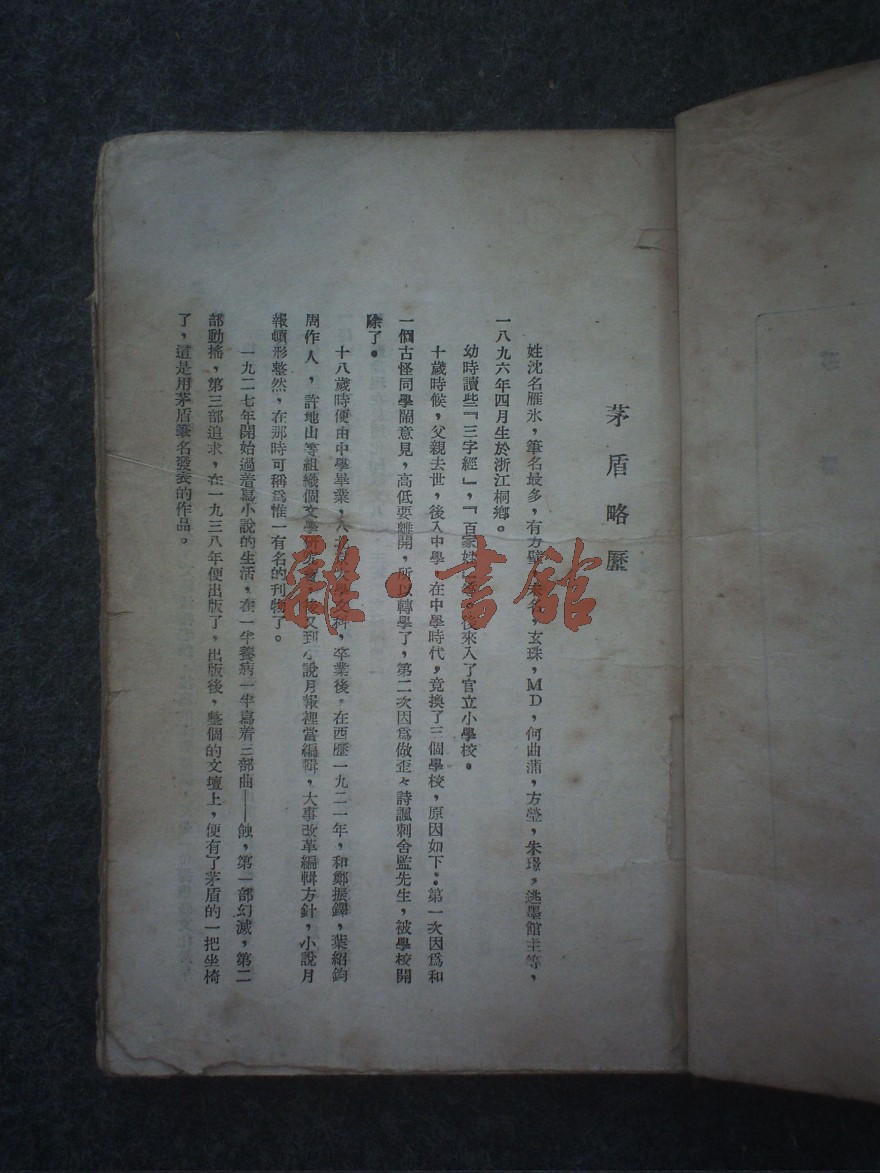 茅盾略歷
姓沈名雁冰，筆名最多，有方璧，未名，玄珠，MD，何曲蒲，方瑩，朱璟，逃墨館主等，
一八九六年四月生於浙江桐鄉。
幼時讀些「三字經」，「百家姓」等。後來入了官立小學校。
十歲時候，父親去世，後入中學，在中學時代，竟換了三個學校，原因如下：第一次因爲和
一個古怪同學鬧意見，高低要離開，所以轉學了，第二次因爲做歪々詩諷刺舍監先生，被學校開
除了。
十八歲時便由中學畢業，入北京大學文科，卒業後，在西歷一九二一年，和鄭振鐸，葉紹鈞
周作人，許地山等組織個文學研究會，後又到小說月報裡當編輯，大事改革編輯方針，小說月
報頓形整然，在那時可稱爲惟一有名的刊物了。
一九二七年開始過着寫小說的生活，在一半養病一半寫着三部曲——蝕，第一部幻滅，第二
部動搖，第三部追求，在一九三八年便出版了，出版後，整個的文壇上，便有了茅盾的一把坐椅
了，這是用茅盾筆名發表的作品。
雜·書館